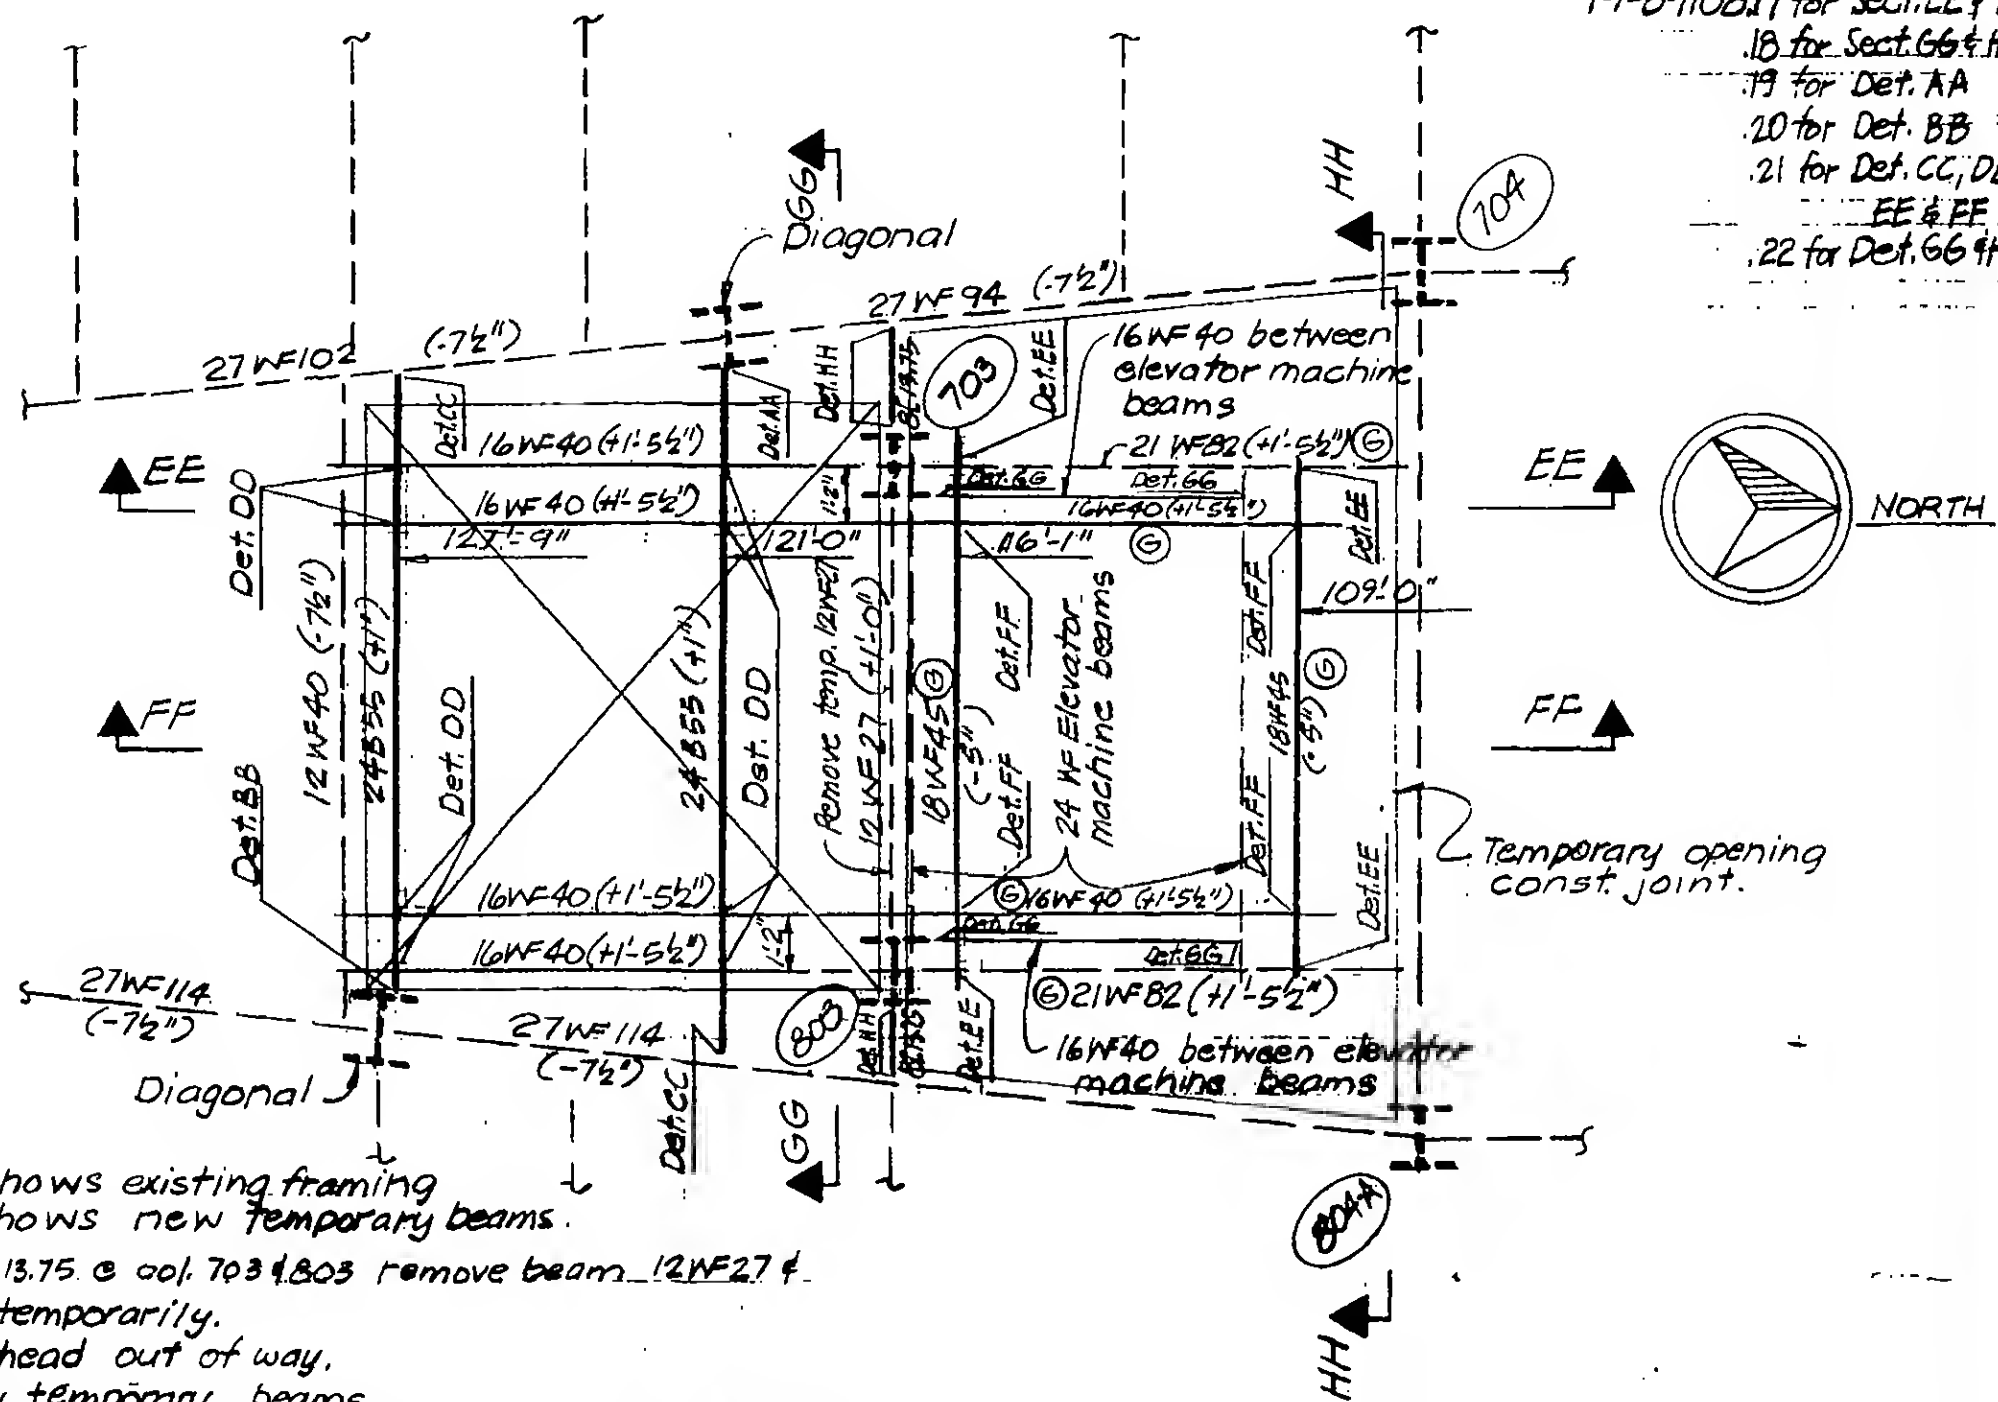 .17 for Sect. EE &
.18 for Sect. GG &
.19 for Det. AA
.20 for Det. BB
.21 for Det. CC,
EE & FF
.22 for Det. GG &
GG
HH
704
Diagonal
27WF94 (-7½")
27WF102 (-7½")
16WF40 between
elevator machine
beams
Det. CC
Det. AA
Det. HH
8[13.75
703
Det. EE
16WF40 (+1'-5½")
21WF82 (+1'-5½") G
EE
EE
Det. DD
Det. GG
Det. GG
16WF40 (+1'-5½")
1'-2"
16WF40 (+1'-5½")
G
Det. EE
NORTH
127'-9"
121'-0"
116'-1"
109'-0"
12WF40 (-7½")
24B55 (+1")
24B55 (+1")
Det. DD
Det. DD
Remove temp. 12WF27
12WF27 (+1'-0")
18WF45 G
(-5")
Det. FF
Det. FF
24WF Elevator
machine beams
Det. FF
Det. FF
18WF45 G
(-5")
FF
FF
Det. BB
Det. EE
Temporary opening
const. joint.
16WF40 (+1'-5½")
G 16WF40 (+1'-5½")
16WF40 (+1'-5½")
1'-2"
Det. GG
Det. GG
27WF114
(-7½")
27WF114
(-7½")
803
G 21WF82 (+1'-5½")
Det. HH
8[13.75
Det. EE
16WF40 between elevator
machine beams
Diagonal
Det. CC
GG
804A
HH
hows existing framing
hows new temporary beams.
13.75 @ col. 703 & 803 remove beam 12WF27 &
temporarily.
head out of way.
temporary beams